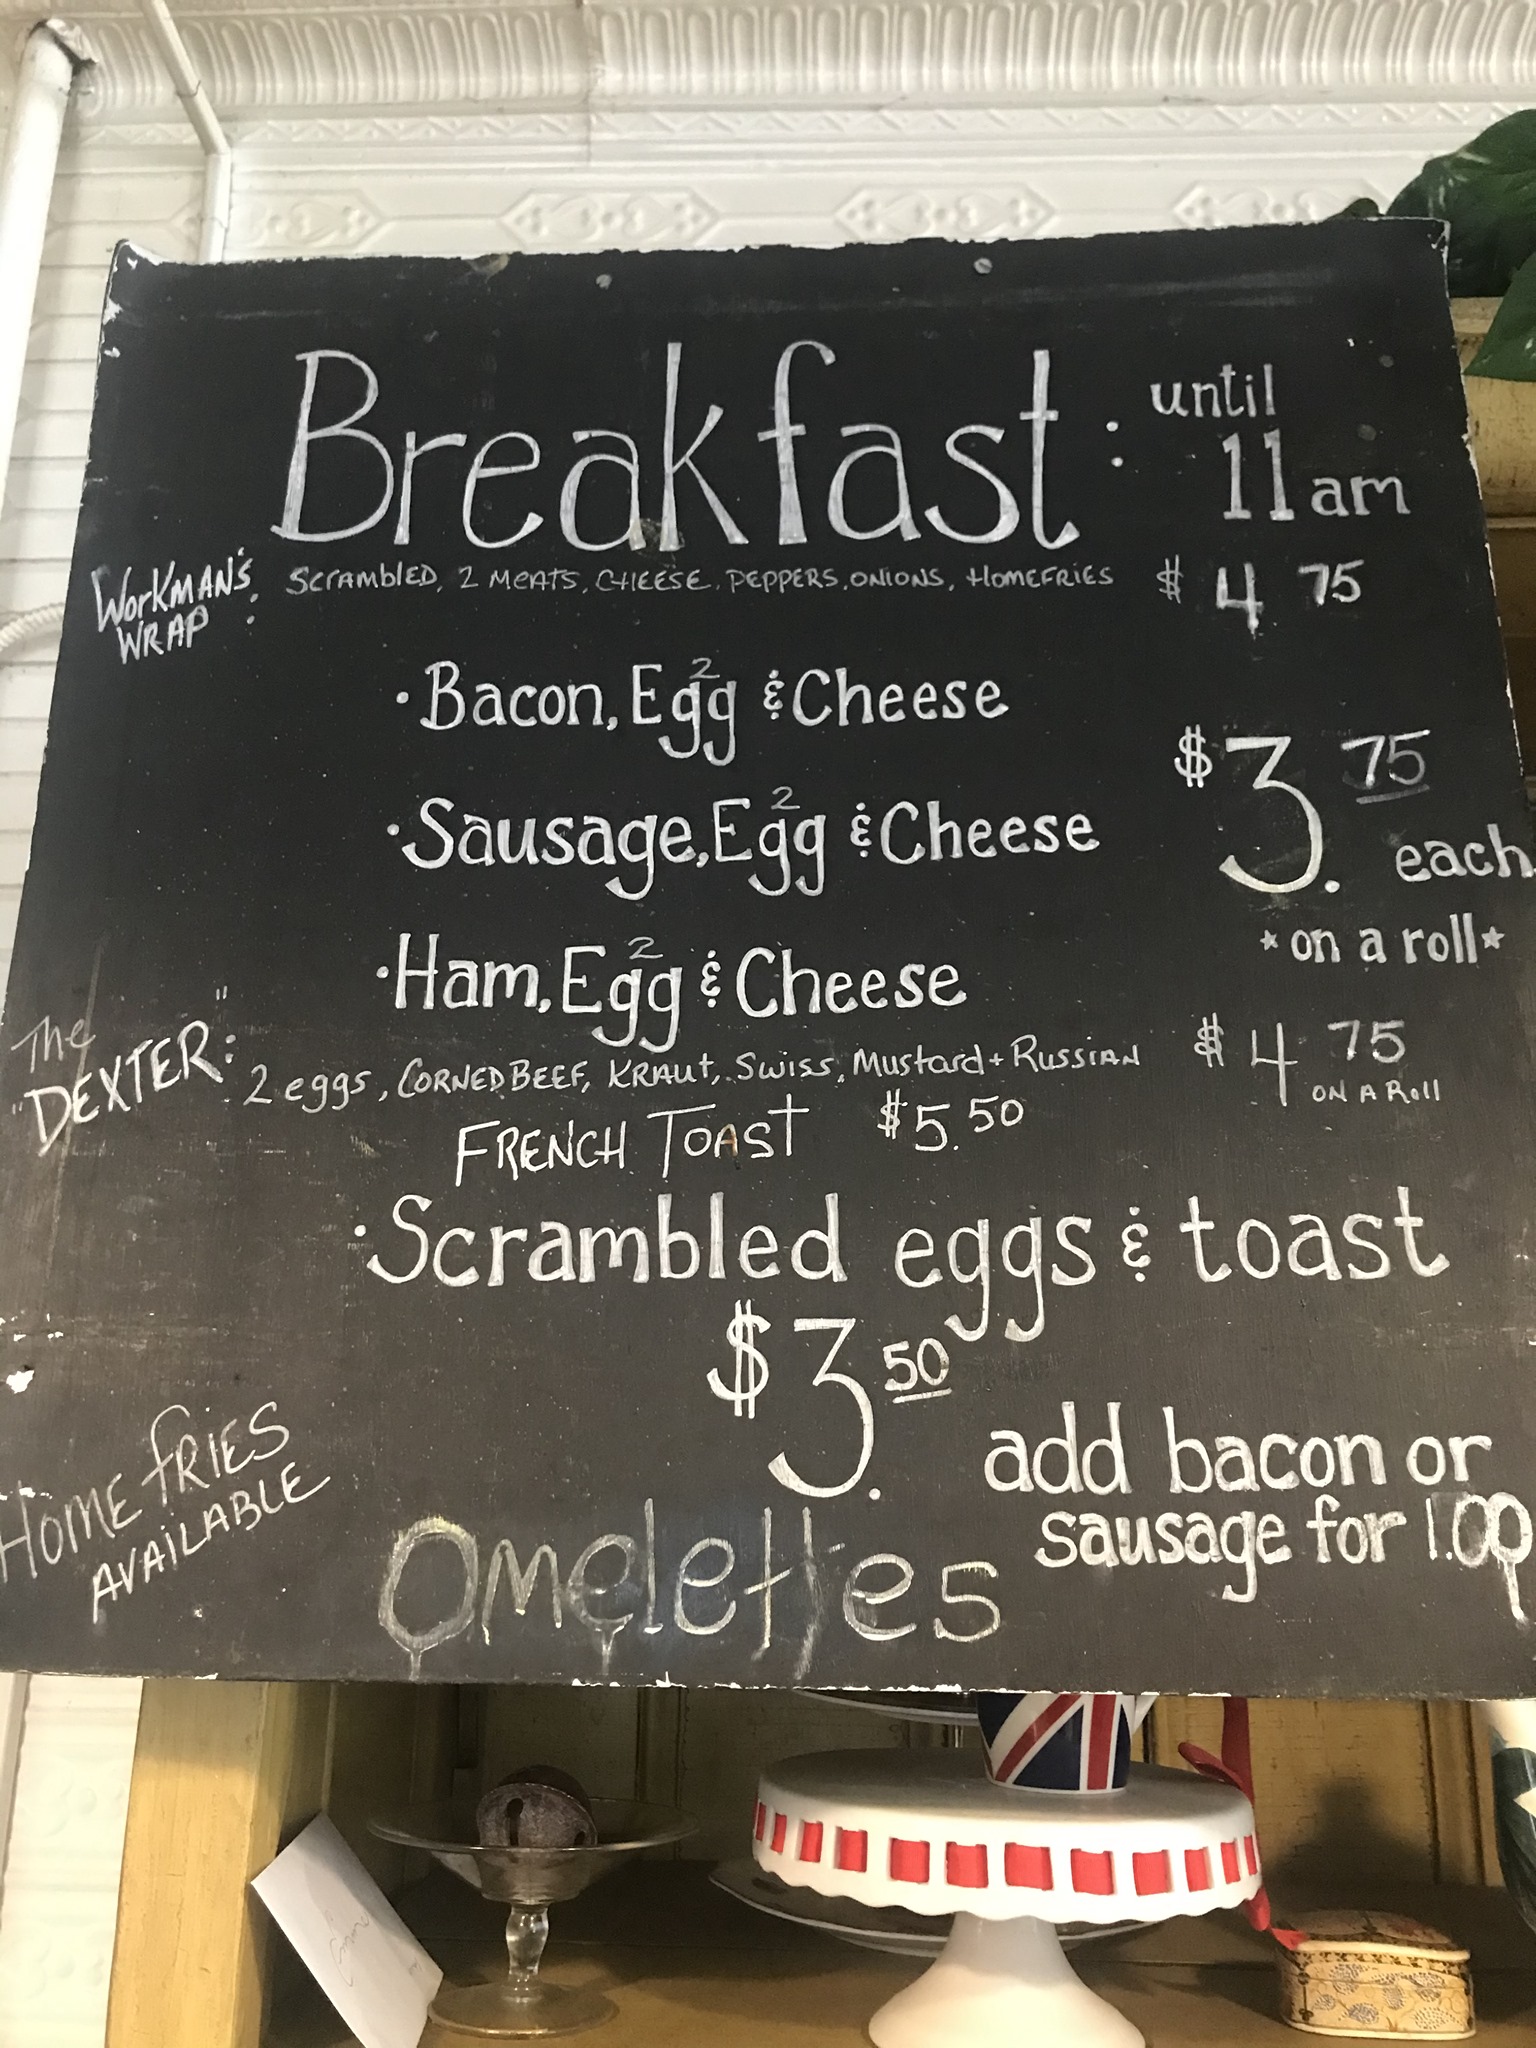 Breakfast: until 11 am
Workman's Wrap: Scrambled, 2 Meats, Cheese, Peppers, Onions, Homefries $4 75
• Bacon, Egg 2 & Cheese
• Sausage, Egg 2 & Cheese
• Ham, Egg 2 & Cheese
$3.75 each
*on a roll*
The "DEXTER": 2 eggs, Corned Beef, Kraut, Swiss, Mustard + Russian $4 75
ON A ROLL
FRENCH TOAST $5.50
• Scrambled eggs & toast
$3.50
add bacon or
sausage for 1.00
HOME FRIES
AVAILABLE
Omelettes